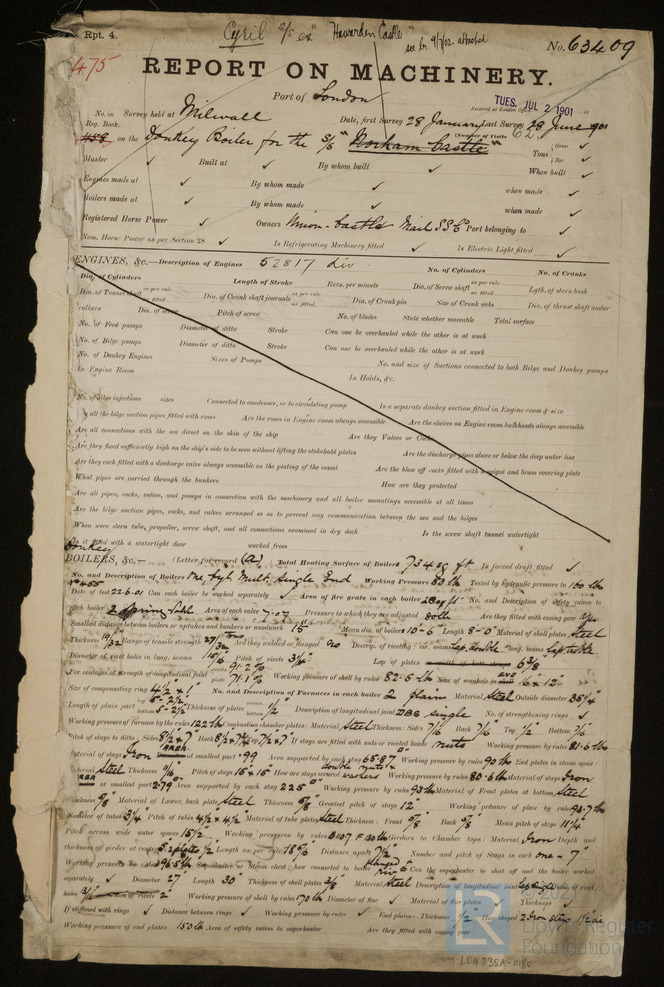 Rpt. 4.
Cyril S/S ex "Hawarden Castle"
see lr. 9/7/02. attached
No. 63409
475
REPORT ON MACHINERY.
Port of London
TUES. JUL 2 1901
Received at London Office
No. in Reg. Book. Survey held at Milwall Date, first Survey 28 January Last Survey 28 June 1901
(Number of Visits 62)
458 on the Donkey Boiler for the S/S "Norham Castle" Tons Gross Net
Master Built at By whom built When built
Engines made at By whom made when made
Boilers made at By whom made when made
Registered Horse Power Owners Union-Castle Mail SS Co Port belonging to
Nom. Horse Power as per Section 28 Is Refrigerating Machinery fitted Is Electric Light fitted
ENGINES, &c.—Description of Engines 52817 liv. No. of Cylinders No. of Cranks
Dia. of Cylinders Length of Stroke Revs. per minute Dia. of Screw shaft as per rule as fitted Lgth. of stern bush
Dia. of Tunnel shaft as per rule as fitted Dia. of Crank shaft journals as per rule as fitted Dia. of Crank pin Size of Crank webs Dia. of thrust shaft under
collars Dia. of screw Pitch of screw No. of blades State whether moveable Total surface
No. of Feed pumps Diameter of ditto Stroke Can one be overhauled while the other is at work
No. of Bilge pumps Diameter of ditto Stroke Can one be overhauled while the other is at work
No. of Donkey Engines Sizes of Pumps No. and size of Suctions connected to both Bilge and Donkey pumps
In Engine Room In Holds, &c.
No. of bilge injections sizes Connected to condenser, or to circulating pump Is a separate donkey suction fitted in Engine room & size
Are all the bilge suction pipes fitted with roses Are the roses in Engine room always accessible Are the sluices on Engine room bulkheads always accessible
Are all connections with the sea direct on the skin of the ship Are they Valves or Cocks
Are they fixed sufficiently high on the ship's side to be seen without lifting the stokehold plates Are the discharge pipes above or below the deep water line
Are they each fitted with a discharge valve always accessible on the plating of the vessel Are the blow off cocks fitted with a spigot and brass covering plate
What pipes are carried through the bunkers How are they protected
Are all pipes, cocks, valves, and pumps in connection with the machinery and all boiler mountings accessible at all times
Are the bilge suction pipes, cocks, and valves arranged so as to prevent any communication between the sea and the bilges
When were stern tube, propeller, screw shaft, and all connections examined in dry dock Is the screw shaft tunnel watertight
Is it fitted with a watertight door worked from
Donkey
BOILERS, &c.— (Letter for record (a)) Total Heating Surface of Boilers 734 sq ft Is forced draft fitted
No. and Description of Boilers One, Cyl. Mult. Single End Working Pressure 80 lb Tested by hydraulic pressure to 160 lb
No 465
Date of test 22.6.01 Can each boiler be worked separately Area of fire grate in each boiler No. and Description of safety valves to
each boiler 2 Spring Area of each valve 7.07 Pressure to which they are adjusted 80 lb Are they fitted with easing gear Yes
Smallest distance between boilers or uptakes and bunkers or woodwork 15" Mean dia. of boilers 10-6 Length 8-0 Material of shell plates Steel
Thickness 19/32 Range of tensile strength Are they welded or flanged no Descrip. of riveting: cir. seams Lap double long. seams Lap treble
Diameter of rivet holes in long. seams 15/16 Pitch of rivets 3 1/4 Lap of plates 6 3/8
Per centages of strength of longitudinal joint rivets 91.2% plate 71.1% Working pressure of shell by rules 82.5 lb Size of manhole in shell 16" x 12"
Size of compensating ring 4 1/2 x 1" No. and Description of Furnaces in each boiler 2 plain Material Steel Outside diameter 36 1/4"
Length of plain part top bottom Thickness of plates crown bottom 1/2" Description of longitudinal joint DBS single No. of strengthening rings
Working pressure of furnace by the rules 122 lb Combustion chamber plates: Material Steel Thickness: Sides 7/16 Back 7/16 Top 1/2 Bottom 7/16
Pitch of stays to ditto: Sides 8 1/2 x 7 Back If stays are fitted with nuts or riveted heads nuts Working pressure by rules 81.6 lb
Material of stays Iron Area at smallest part .99 Area supported by each stay 65.87 Working pressure by rules 90 lb End plates in steam space:
Material Steel Thickness 11/16 Pitch of stays 15 x 15 How are stays secured double nuts & washers Working pressure by rules 80.6 lb Material of stays Iron
Area at smallest part 2.79 Area supported by each stay 225 Working pressure by rules 93 lb Material of Front plates at bottom Steel
Thickness 5/8 Material of Lower back plate Steel Thickness 5/8 Greatest pitch of stays 12 Working pressure of plate by rules 93.7 lb
Diameter of tubes 3 1/4 Pitch of tubes 4 1/2 x 4 1/2 Material of tube plates Steel Thickness: Front 5/8 Back 5/8 Mean pitch of stays 11 1/4
Pitch across wide water spaces 13 1/2 Working pressures by rules Girders to Chamber tops: Material Iron Depth and
thickness of girder at centre Length as per rule Distance apart 7 1/2 Number and pitch of Stays in each one - 7"
Working pressure by rules 96.5 lb Superheater or Steam chest; how connected to boiler Can the superheater be shut off and the boiler worked
separately Diameter 27" Length 30" Thickness of shell plates 3/8 Material Steel Description of longitudinal joint Lap Single Diam. of rivet
holes Pitch of rivets 2" Working pressure of shell by rules 170 lb Diameter of flue Material of flue plates Thickness
If stiffened with rings Distance between rings Working pressure by rules End plates: Thickness 1/2" How stayed 2 Iron stays
Working pressure of end plates 150 lb Area of safety valves to superheater Are they fitted with easing gear
Lloyd's Register
Foundation
LON735A-0180